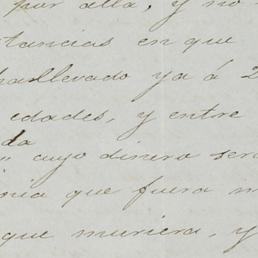 por alla, y no
tancias en que
llevado ya á 2
edades, y entre
da
" cuyo dinero ser
que fuera m
que muriera, y